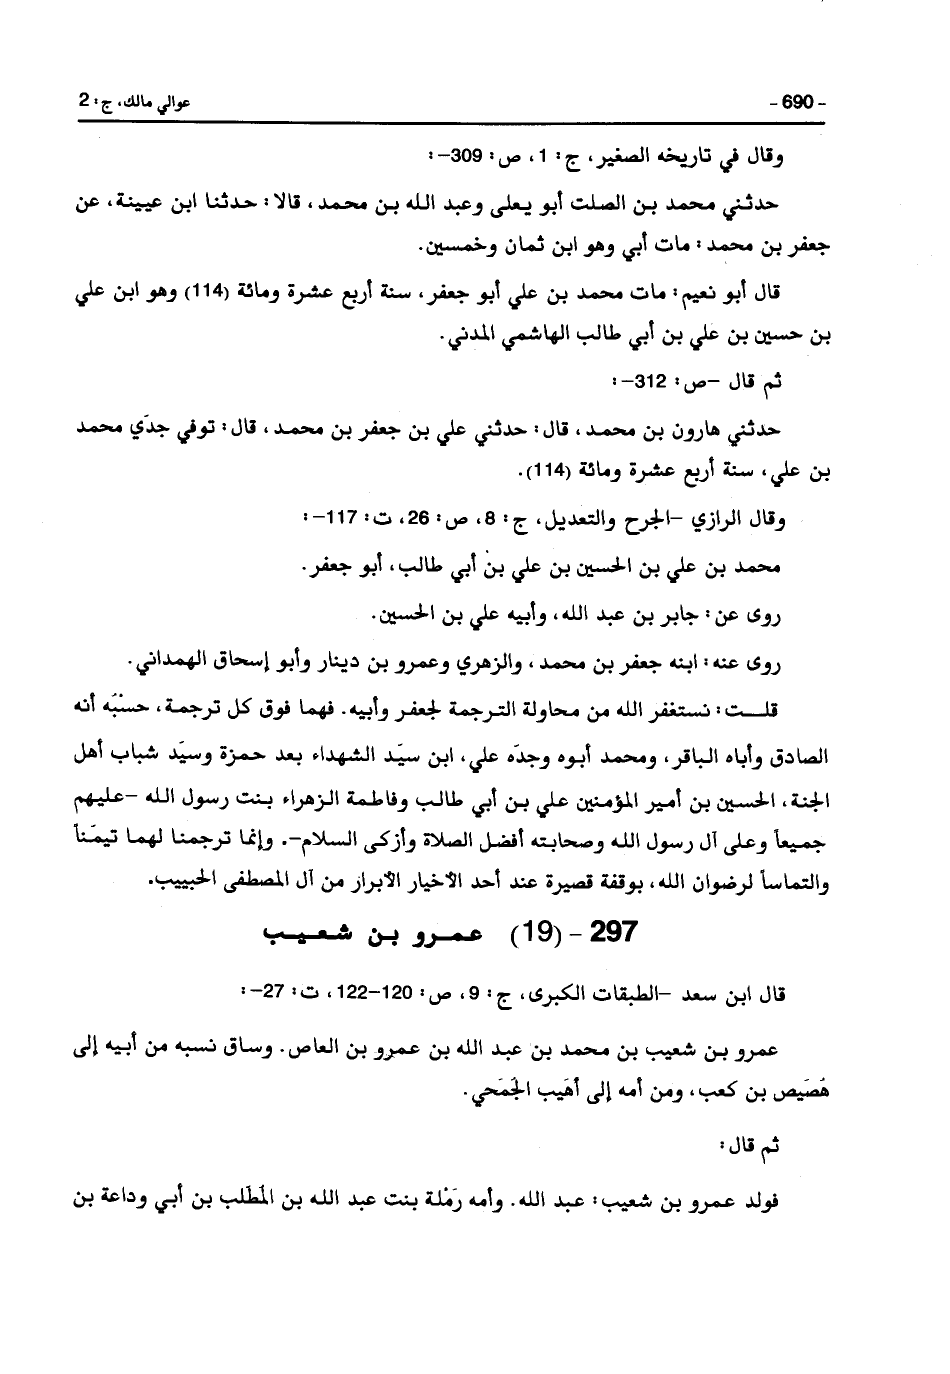 - 690 -
عوالي مالك، ج: 2
وقال في تاريخه الصغير، ج: 1، ص: 309–:
حدثني محمد بن الصلت أبو يعلى وعبد الله بن محمد، قالا: حدثنا ابن عيينة، عن
جعفر بن محمد: مات أبي وهو ابن ثمان وخمسين.
قال أبو نعيم: مات محمد بن علي أبو جعفر، سنة أربع عشرة ومائة (114) وهو ابن علي
بن حسين بن علي بن أبي طالب الهاشمي المدني.
ثم قال –ص: 312–:
حدثني هارون بن محمد، قال: حدثني علي بن جعفر بن محمد، قال: توفي جدّي محمد
بن علي، سنة أربع عشرة ومائة (114).
وقال الرازي –الجرح والتعديل، ج: 8، ص: 26، ت: 117–:
محمد بن علي بن الحسين بن علي بن أبي طالب، أبو جعفر.
روى عن: جابر بن عبد الله، وأبيه علي بن الحسين.
روى عنه: ابنه جعفر بن محمد، والزهري وعمرو بن دينار وأبو إسحاق الهمداني.
قلــت: نستغفر الله من محاولة الترجمة لجعفر وأبيه. فهما فوق كل ترجمة، حسْبَه أنه
الصادق وأباه الباقر، ومحمد أبوه وجدّه علي، ابن سيّد الشهداء بعد حمزة وسيّد شباب أهل
الجنة، الحسين بن أمير المؤمنين علي بن أبي طالب وفاطمة الزهراء بنت رسول الله –عليهم
جميعاً وعلى آل رسول الله وصحابته أفضل الصلاة وأزكى السلام–. وإنما ترجمنا لهما تيمّناً
والتماساً لرضوان الله، بوقفة قصيرة عند أحد الأخيار الأبرار من آل المصطفى الحبيب.
297 – (19) عمــرو بن شعيب
قال ابن سعد –الطبقات الكبرى، ج: 9، ص: 120–122، ت: 27–:
عمرو بن شعيب بن محمد بن عبد الله بن عمرو بن العاص. وساق نسبه من أبيه إلى
هُصَيص بن كعب، ومن أمه إلى أهَيب الجُمَحي.
ثم قال:
فولد عمرو بن شعيب: عبد الله. وأمه رَمْلة بنت عبد الله بن المُطَّلب بن أبي وداعة بن